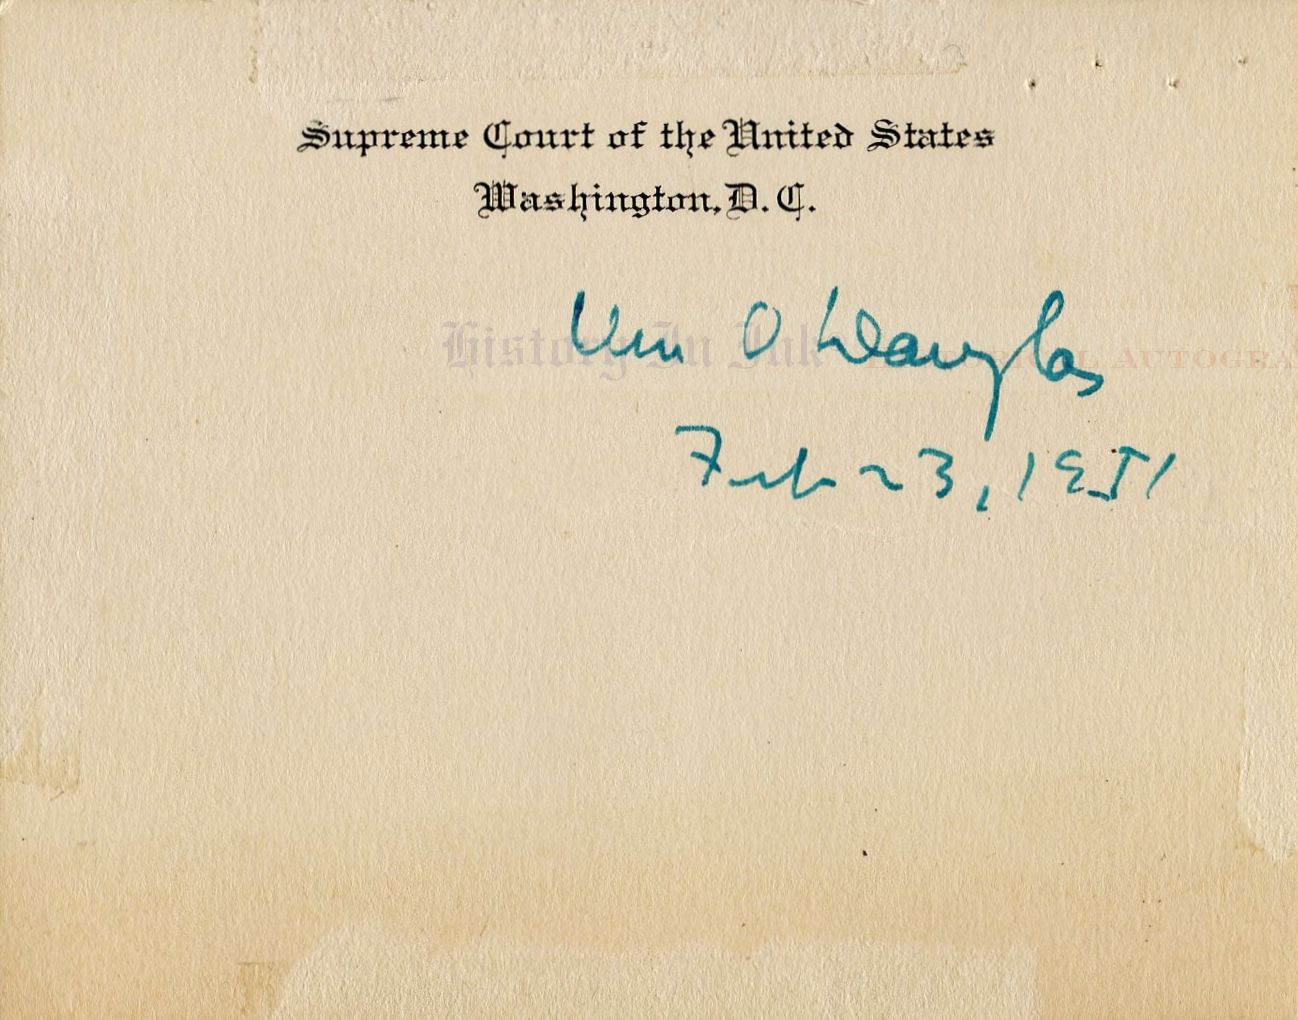 Supreme Court of the United States
Washington, D.C.
History In Ink
Autogra
Wm O Douglas
Feb 23, 1951